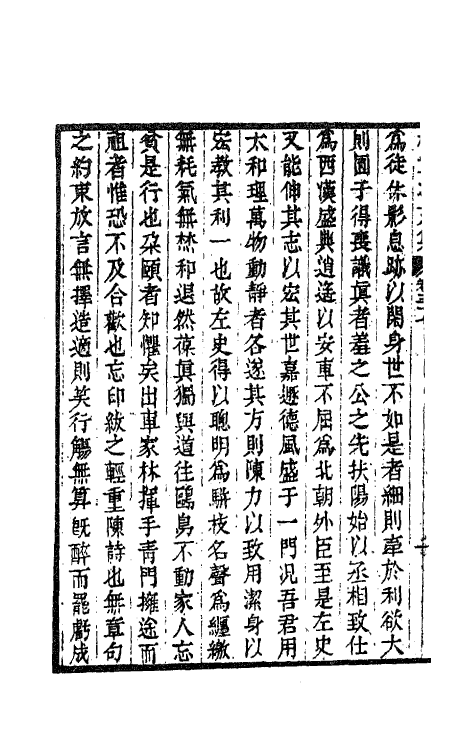 爲徒休影息跡以閑身世不如是者細則牽於利欲大
則囿于得喪議眞者羞之公之先扶陽始以丞相致仕
爲西漢盛典逍遙以安車不屈爲北朝外臣至是左史
又能伸其志以宏其世嘉遯德風盛于一門況吾君用
太和理萬物動靜者各遂其方則陳力以致用潔身以
宏教其利一也故左史得以聰明爲駢枝名聲爲纆繳
無耗氣無焚和退然葆眞獨與道往鷗鳥不動家人忘
貧是行也朶頤者知懼矣出車家林揮手青門擁途而
祖者惟恐不及合歡也忘印紱之輕重陳詩也無章句
之約束放言無擇造適則笑行觴無算旣醉而罷虧成